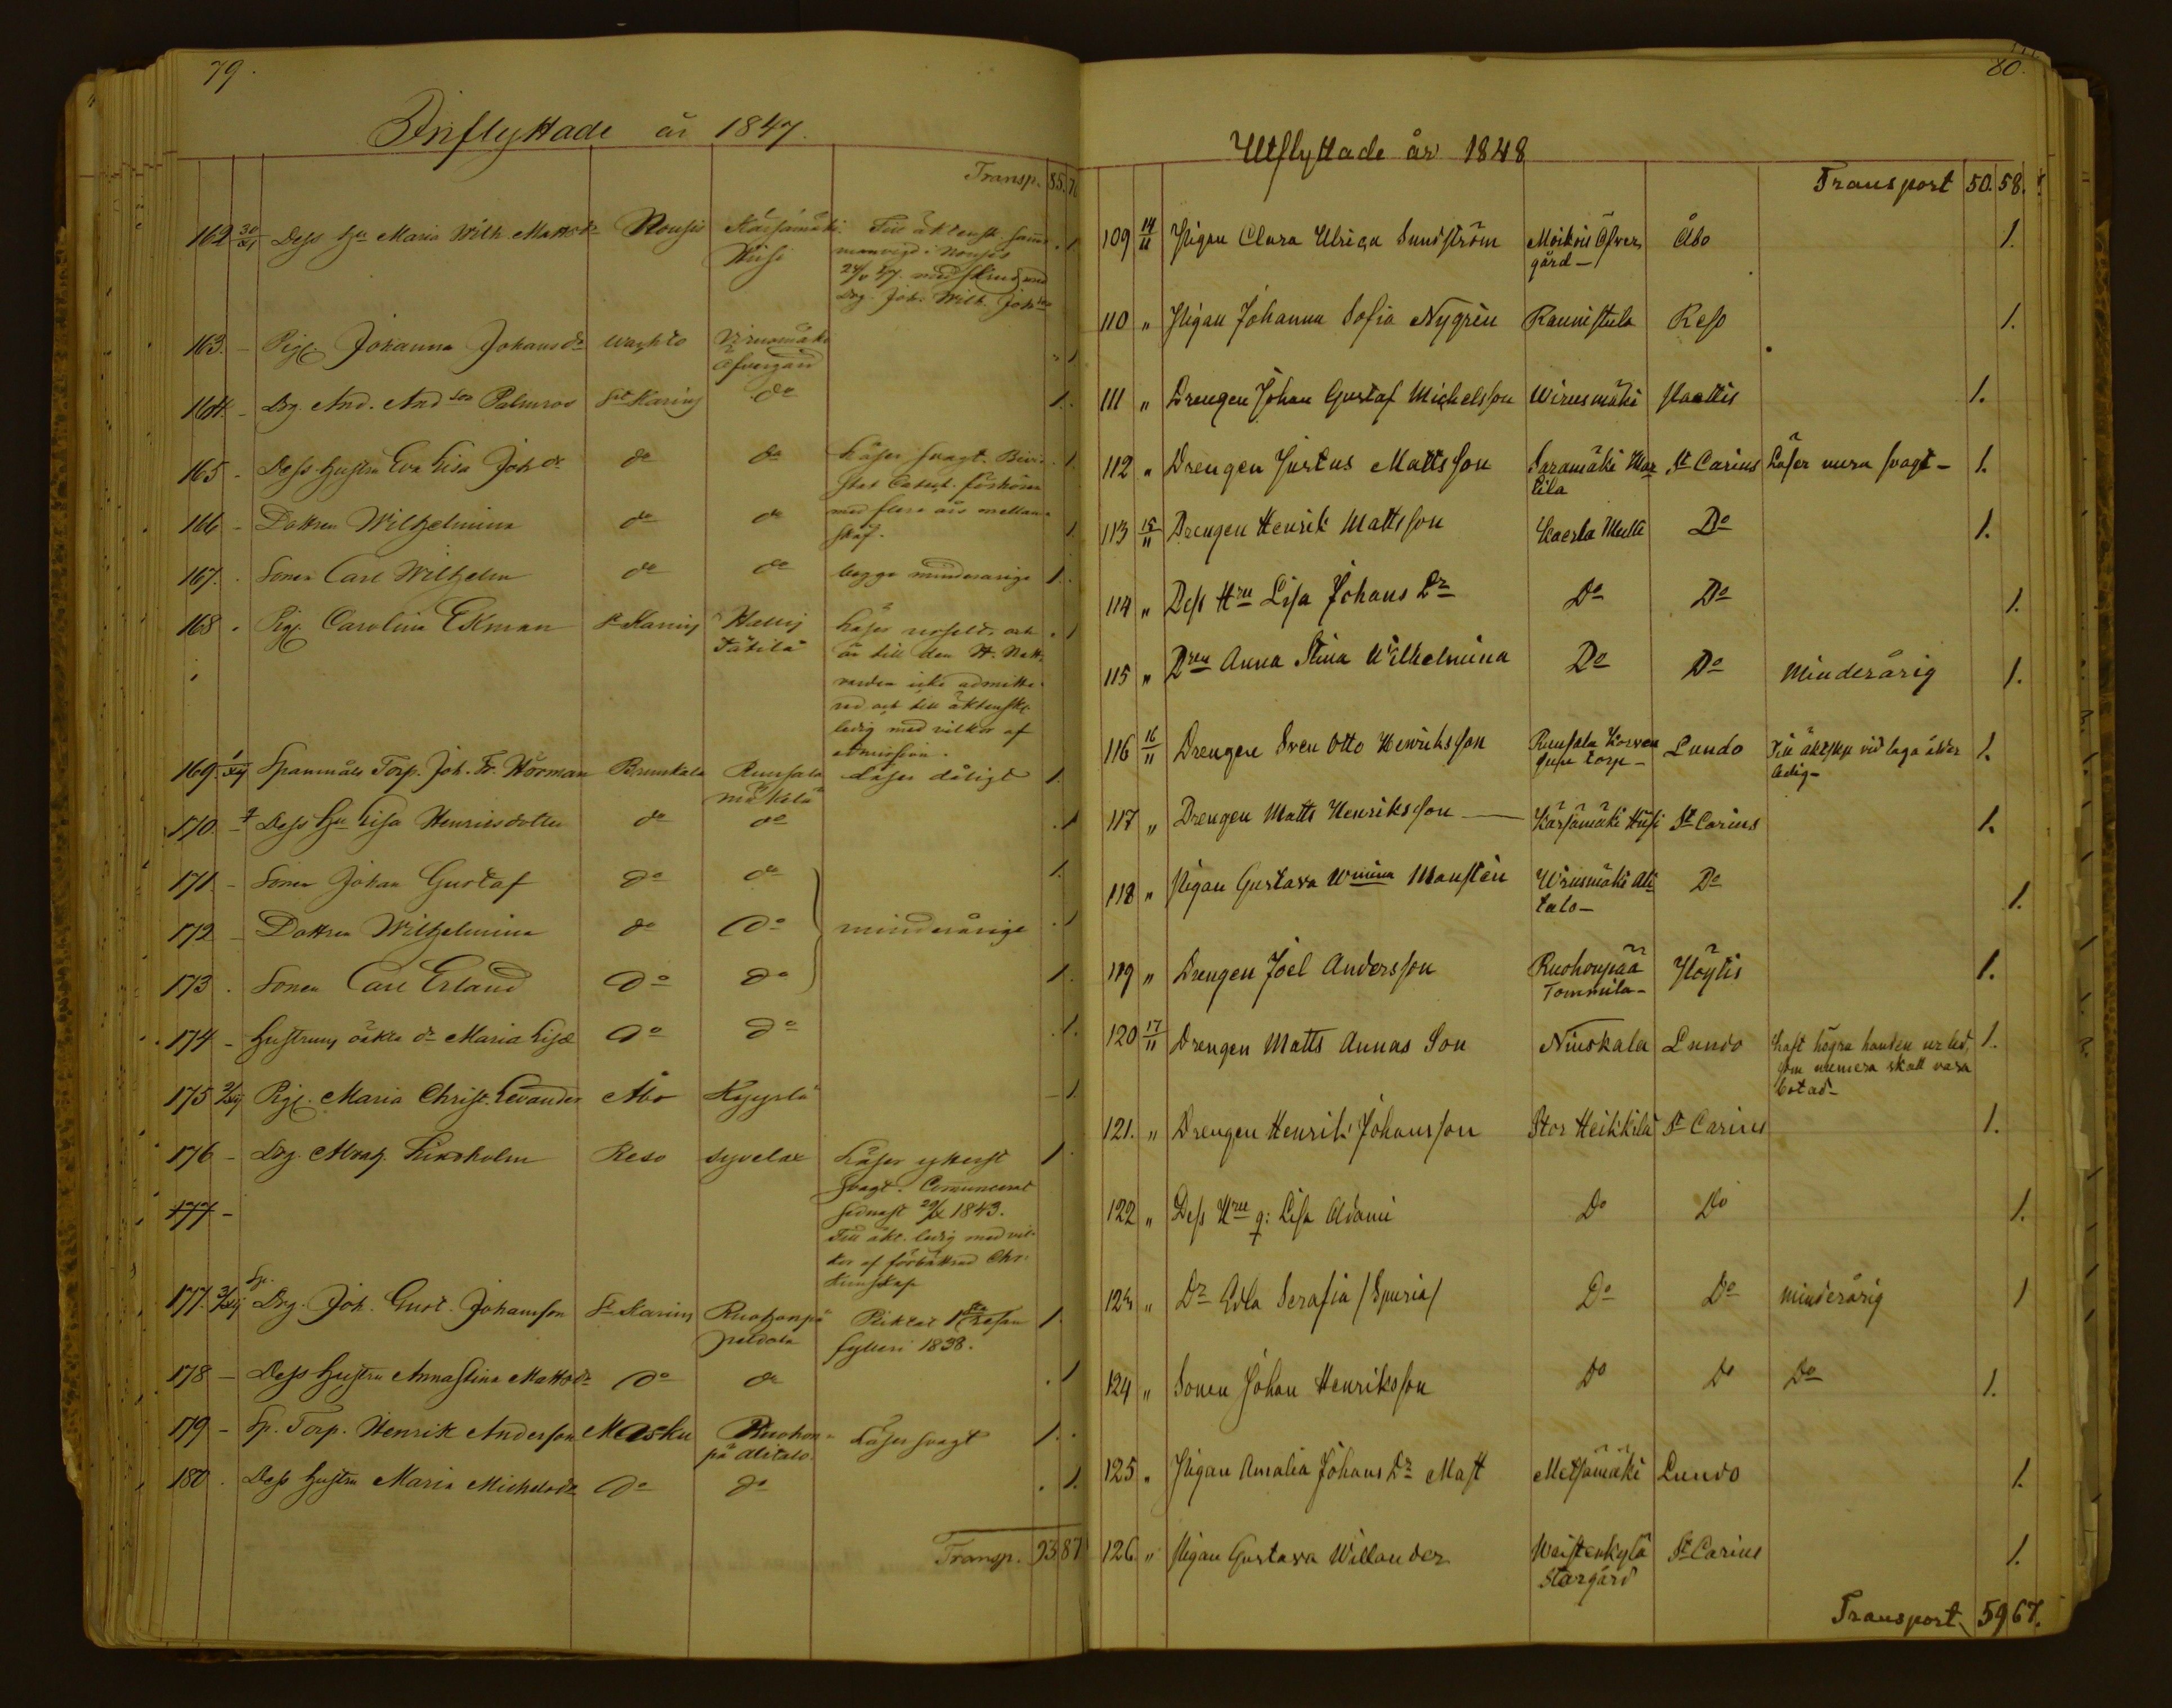 79.
Inflyttade år 1847.
Transp. 85. 76
162 30/XI Dess Hu Maria Wilh. Mattsdr Nousis Kärsämäki Till äktensk. sam
Hiisi manvigd i Nousis
med
Drg. Joh. Wilh. Johsson
163. – Pig. Johanna Johansdr Wirusmäki 1
Öfvergård
164. – Drg. And. Andsson Palmroos St Karins do 1.
165 – Dess hustru Eva Lisa Johdr do do Läser svagt. Bevi- 1
stat Catech. förhören
166 – Dottren Wilhelmina do do med flera års mellan- 1
skof.
167. . Sonen Carl Wilhelm do do begge minderårige 1.
168 . Pig. Carolina Ekman St Karins Hallis Läser och 1
Tätilä är till den H. Natt-
varden icke admitte-
rad och till äktensk.
ledig med vilkor af
admission.
169 1/XII Spanmåls Torp. Joh. Fr. Hörman Brunkala Runsala Läser dåligt 1.
Mäkelä
170. – Dess Hu Lisa Henricsdotter do do 1
171 – Sonen Johan Gustaf do do 1.
172 – Dottren Wilhelmina do do minderårige 1
173 . Sonen Carl Erland do do 1.
174 – Hustruns oäkta dr Maria Lisa do do 1.
175 2/XII Pig. Maria Christ. Levander Åbo 1
176 – Drg. Abrah. Reso Syvelax Läser ytterst 1
svagt. Communicerat
177 – sednast 1843.
Till äkt. ledig med vil-
kor af förbättrad Chr.
kunskap
Sp.
177. 3/XII Drg. Joh. Gust. Johansson St Karins Ruohonpä Pliktat 1sta resan 1.
Peldola fylleri 1838.
178 – Dess hustru Annastina Mattsdr do do 1
179 – Sp. Torp. Henrik Andersson Masku Ruohon- Läser svagt 1.
pä Alitalo.
180 . Dess hustru Maria Michelsdr do do 1.
Transp. 93 87
80.
Utflyttade år 1848
Transport 50. 58.
109 14/11 Pigan Clara Ulrica Sundström Moikois Öfver Åbo 1.
gård –
110 " Pigan Johanna Sofia Nygrén Raunistula Reso 1.
111 " Drengen Johan Gustaf Michelsson Wirusmäki Paattis 1.
112 " Drengen Justus Mattsson Saramäki Mar St Carins Läser svagt – 1.
tila
113 15/11 Drengen Henrik Mattsson Kaerla Mulli Do 1.
114 " Dess Hru Lisa Johans Dr Do Do 1.
115 " Dren Anna Stina Wilhelmina Do Do Minderårig 1.
116 16/11 Drengen Sven Otto Henriksson Runsala Korven Lundo Till äktskp vid laga ålder 1.
torp – ledig –
117 " Drengen Matts Henriksson — Kärsämäki Hiisi St Carins 1.
118 " Pigan Gustava Wmina Mansten Wirusmäki Ali Do 1.
talo –
119 " Drengen Joel Andersson Ruohonpää Pöytis 1.
Tommila –
120 17/11 Drengen Matts Annas Son Niuskala Lundo haft högra handen ur led, 1.
som numera skall vara
botad –
121. " Drengen Henrik Johansson Stor Heikkilä St Carins 1.
122 " Dess Hru g: Lisa Adami Do Do 1.
123 " Dr Edla Serafia /Spuria/ Do Do minderårig 1
124 " Sonen Johan Henriksson Do Do Do 1.
125 " Pigan Amalia Johans Dr Mast Metsämäki Lundo 1.
126 " Pigan Gustava Willander Waistenkylä St Carins 1.
Storgård
Transport 59 67.